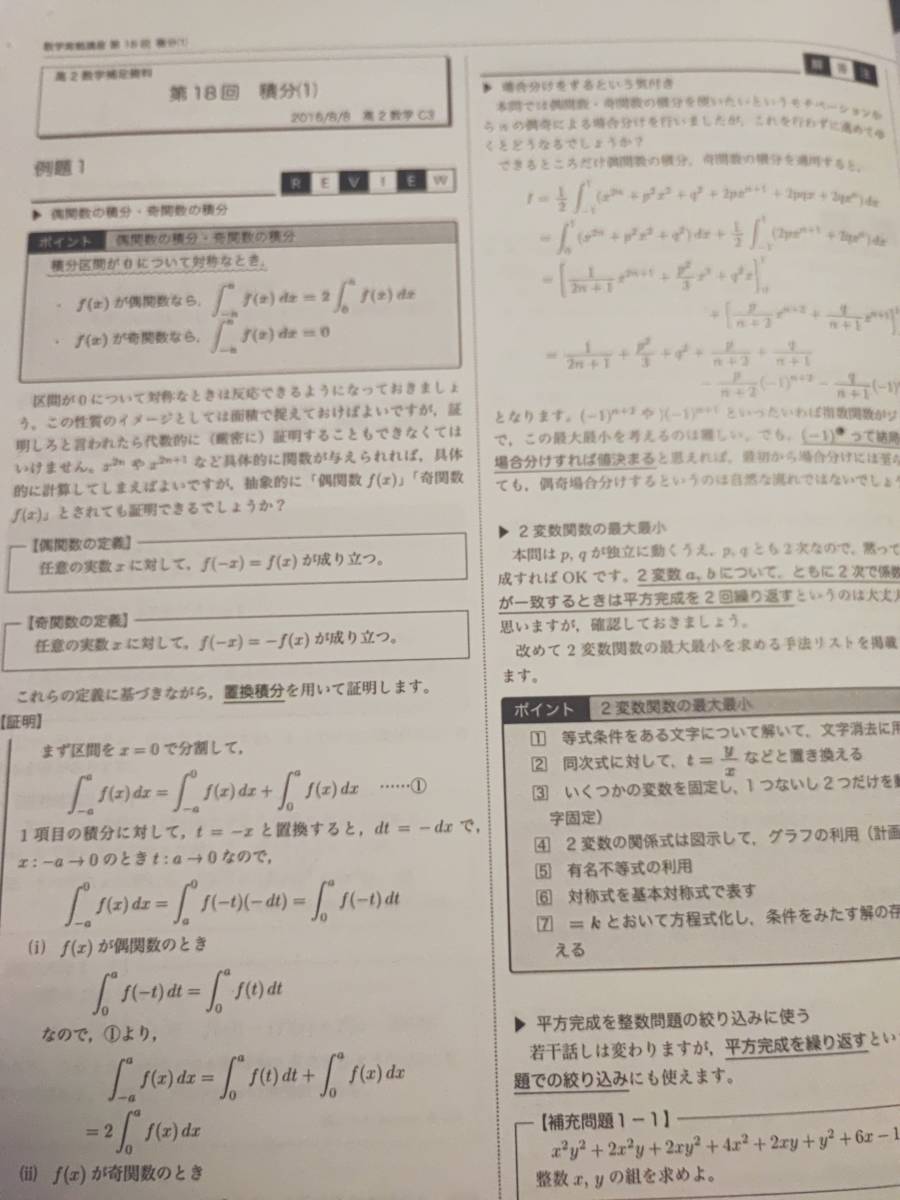 数学実戦講座 第18回 積分(1)
高2数学補足資料
第18回 積分(1)
2016/8/8 高2数学C3
例題1
REVIEW
▶ 偶関数の積分・奇関数の積分
ポイント 偶関数の積分・奇関数の積分
積分区間が0について対称なとき，
・ f(x)が偶関数なら，∫_{-a}^{a} f(x) dx = 2∫_{0}^{a} f(x) dx
・ f(x)が奇関数なら，∫_{-a}^{a} f(x) dx = 0
区間が0について対称なときは反応できるようになっておきましょ
う。この性質のイメージとしては面積で捉えておけばよいですが，証
明しろと言われたら代数的に（厳密に）証明することもできなくては
いけません。x^{2n}やx^{2n+1}など具体的に関数が与えられれば，具体
的に計算してしまえばよいですが，抽象的に「偶関数f(x)」「奇関数
f(x)」とされても証明できるでしょうか？
【偶関数の定義】
任意の実数xに対して，f(-x) = f(x)が成り立つ。
【奇関数の定義】
任意の実数xに対して，f(-x) = -f(x)が成り立つ。
これらの定義に基づきながら，置換積分を用いて証明します。
【証明】
まず区間をx = 0で分割して，
∫_{-a}^{a} f(x) dx = ∫_{-a}^{0} f(x) dx + ∫_{0}^{a} f(x) dx ……①
1項目の積分に対して，t = -xと置換すると，dt = -dxで，
x : -a → 0のときt : a → 0なので，
∫_{-a}^{0} f(x) dx = ∫_{a}^{0} f(-t)(-dt) = ∫_{0}^{a} f(-t) dt
(i) f(x)が偶関数のとき
∫_{0}^{a} f(-t) dt = ∫_{0}^{a} f(t) dt
なので，①より，
∫_{-a}^{a} f(x) dx = ∫_{0}^{a} f(t) dt + ∫_{0}^{a} f(x) dx
= 2∫_{0}^{a} f(x) dx
(ii) f(x)が奇関数のとき
▶ 場合分けをするという気付き
本問では偶関数・奇関数の積分を使いたいというモチベーションか
らnの偶奇による場合分けを行いましたが，これを行わずに進めてゆ
くとどうなるでしょうか？
できるところだけ偶関数の積分，奇関数の積分を適用すると，
I = 1/2 ∫_{-1}^{1} (x^{2n} + p²x² + q² + 2px^{n+1} + 2pqx + 2qx^n) dx
= ∫_{0}^{1} (x^{2n} + p²x² + q²) dx + 1/2 ∫_{-1}^{1} (2px^{n+1} + 2qx^n) dx
= [1/(2n+1) x^{2n+1} + p²/3 x³ + q²x]_{0}^{1}
+ [p/(n+2) x^{n+2} + q/(n+1) x^{n+1}]
= 1/(2n+1) + p²/3 + q² + p/(n+2) + q/(n+1)
- p/(n+2) (-1)^{n+2} - q/(n+1) (-1)
となります。(-1)^{n+2}や(-1)^{n+1}といったいわば指数関数が
で，この最大最小を考えるのは難しい。でも，(-1)^●って結局
場合分けすれば値決まると思えれば，最初から場合分けには至
ても，偶奇場合分けするというのは自然な流れではないでしょ
▶ 2変数関数の最大最小
本問はp, qが独立に動くうえ，p, qとも2次なので，黙って
成すればOKです。2変数a, bについて，ともに2次で係数
が一致するときは平方完成を2回繰り返すというのは大丈
思いますが，確認しておきましょう。
改めて2変数関数の最大最小を求める手法リストを掲載
ます。
ポイント 2変数関数の最大最小
1 等式条件をある文字について解いて，文字消去に
2 同次式に対して，t = y/x などと置き換える
3 いくつかの変数を固定し，1つないし2つだけを
字固定）
4 2変数の関係式は図示して，グラフの利用（計画
5 有名不等式の利用
6 対称式を基本対称式で表す
7 = kとおいて方程式化し，条件をみたす解の存
える
▶ 平方完成を整数問題の絞り込みに使う
若干話しは変わりますが，平方完成を繰り返すとい
題での絞り込みにも使えます。
【補充問題1－1】
x²y² + 2x²y + 2xy² + 4x² + 2xy + y² + 6x - 1
整数x, yの組を求めよ。